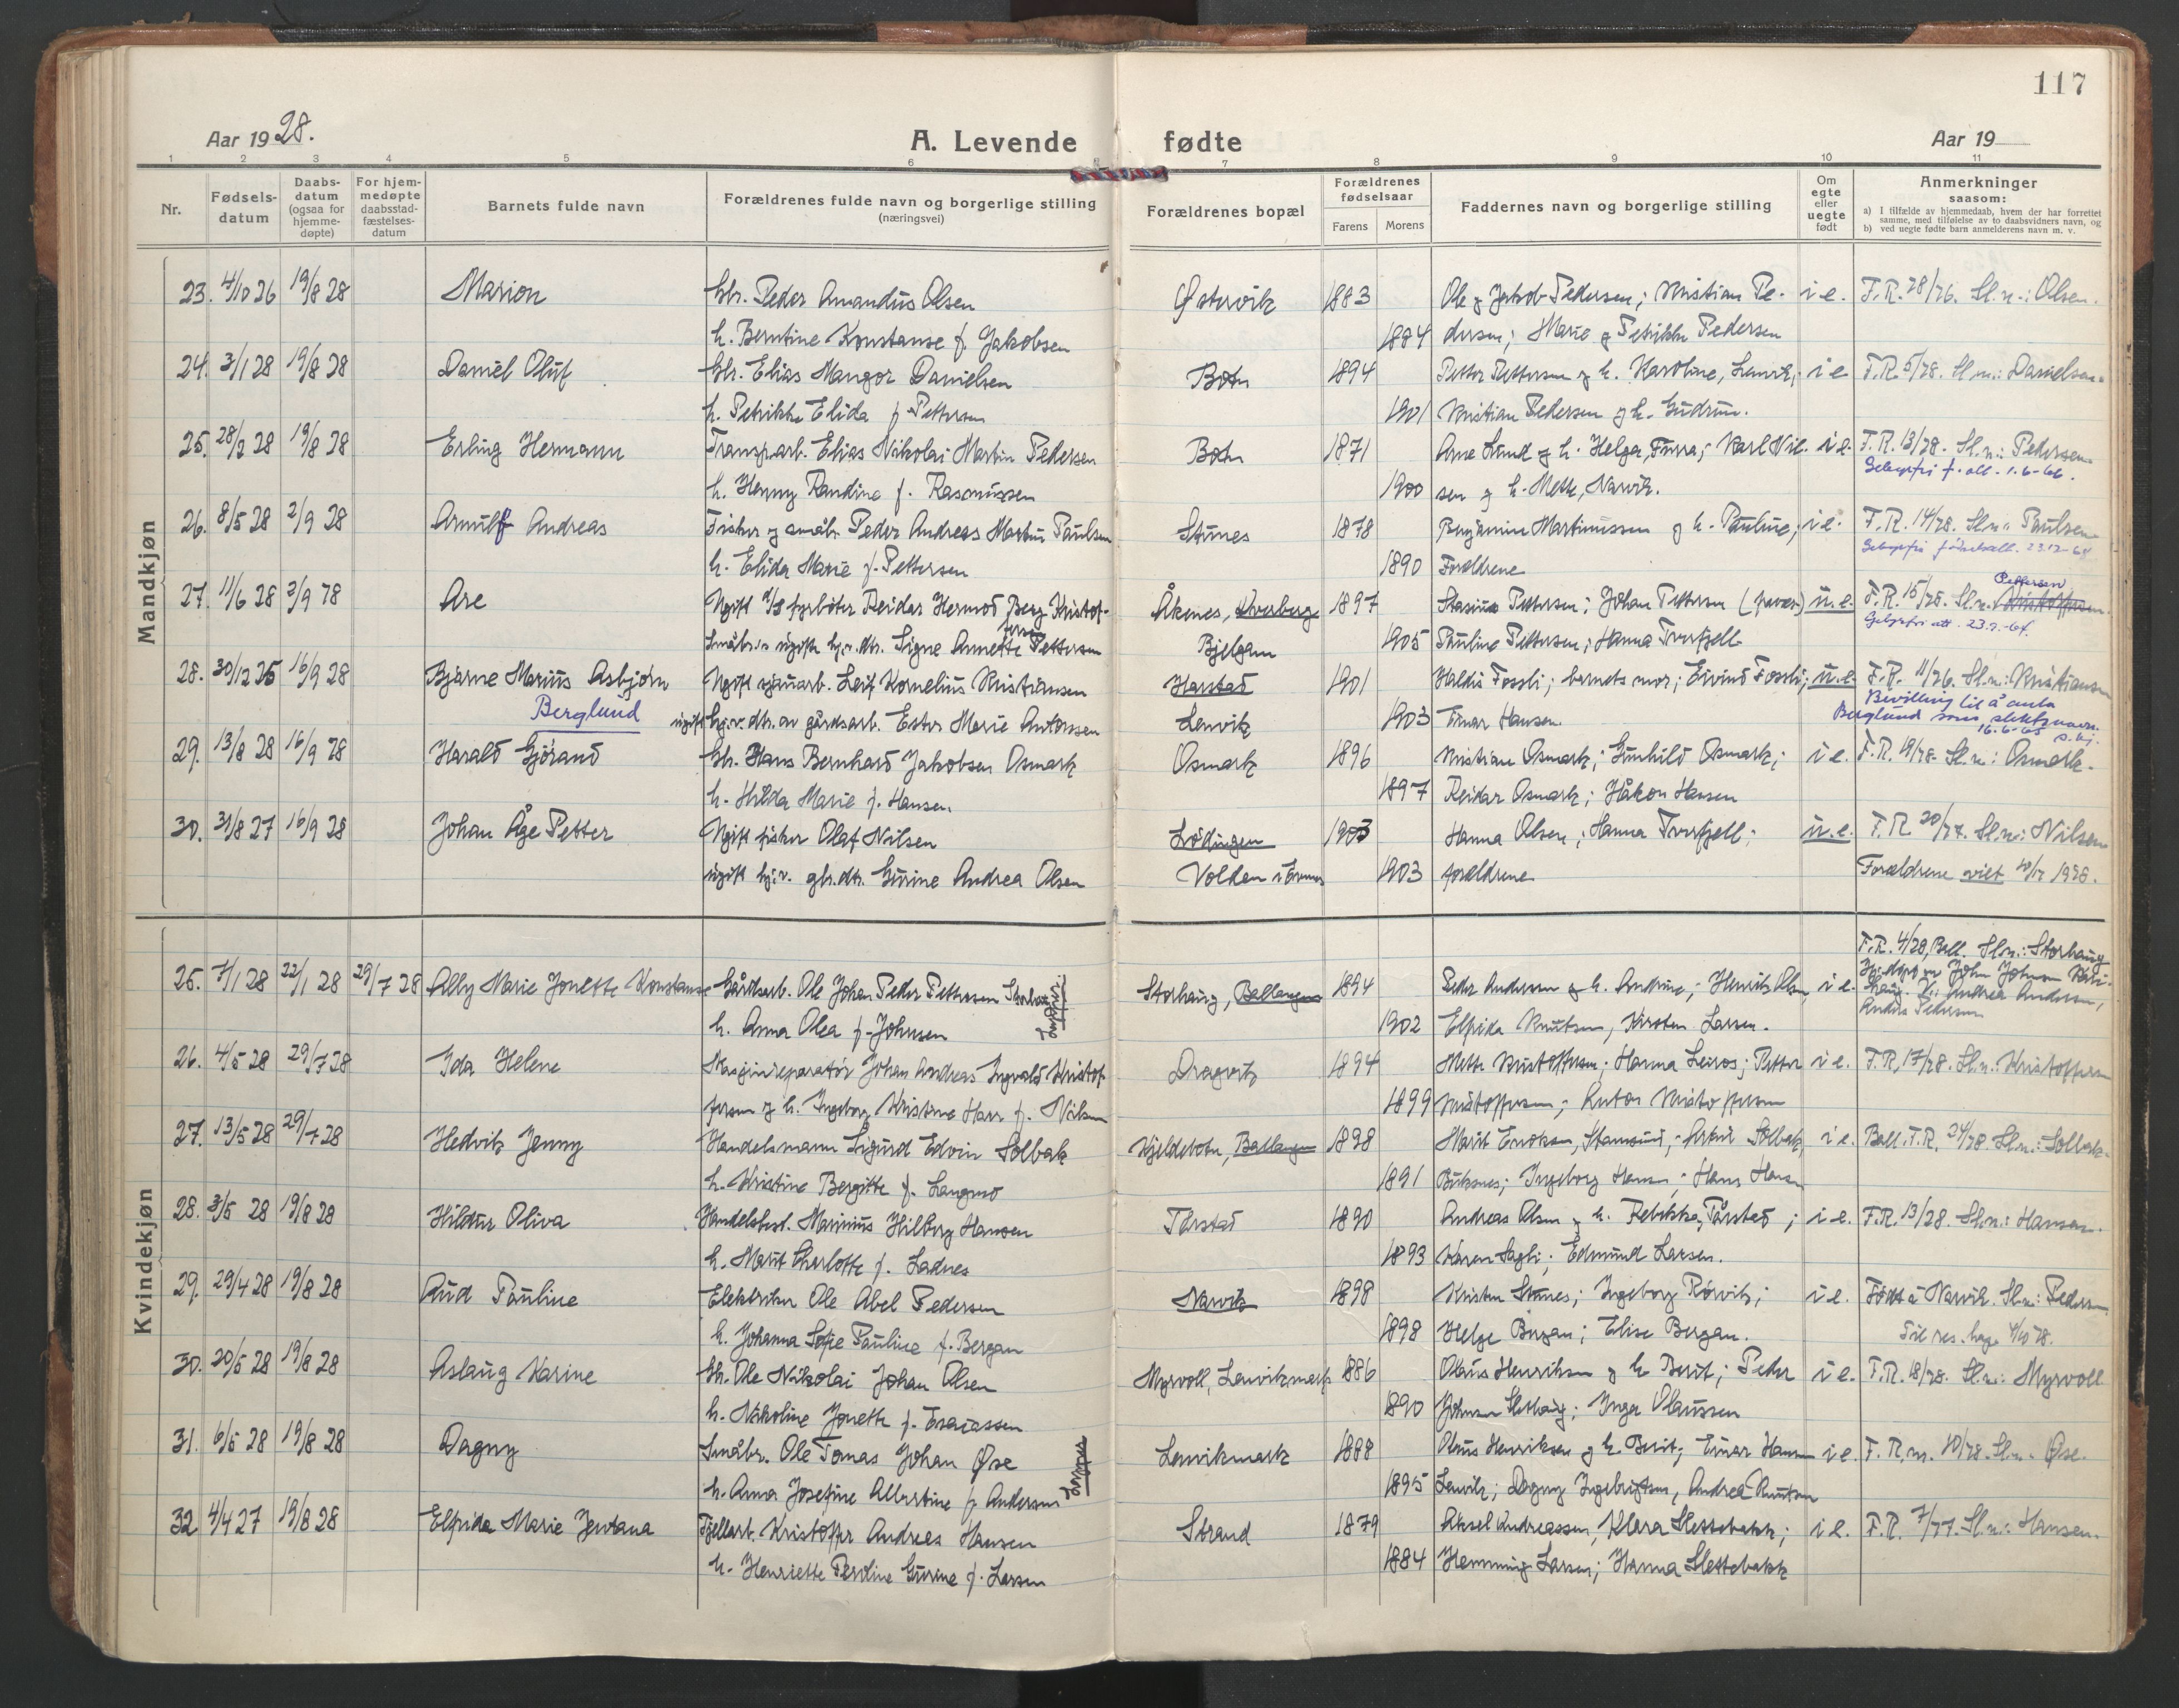 117
Aar 1928.
A. Levende fødte
Aar 19
1 2 3 4 5 6 7 8 9 10 11
Nr.
Fødsels-
datum
Daabs-
datum
(ogsaa for
hjemme-
døpte)
For hjem-
medøpte
daabsstad-
fæstelses-
datum
Barnets fulde navn
Forældrenes fulde navn og borgerlige stilling
(næringsvei)
Forældrenes bopæl
Forældrenes
fødselsaar
Farens Morens
Faddernes navn og borgerlige stilling
Om
egte
eller
uegte
født
Anmerkninger
saasom:
a) I tilfælde av hjemmedaab, hvem der har forrettet
samme, med tilføielse av to daabsvidners navn, og
b) ved uegte fødte barn anmelderens navn m. v.
Mandkjøn
23. 4/10 26 19/8 28 Marion Gbr. Peder Amandus Olsen Østervik 1883 Ole g Jakob Pedersen; Kristian Pe- i e. F.R. 28/26. Sl.n.: Olsen.
h. Berntine Konstanse f. Jakobsen 1884 dersen; Marie g Petrikke Pedersen
24. 3/1 28 19/8 28 Daniel Oluf Gbr. Elias Mangor Danielsen Botn 1894 Petter Pettersen g h. Karoline, Lenvik; i e F.R. 5/28. Sl.n.: Danielsen.
h. Petrikke Elida f. Pettersen 1901 Kristian Pedersen g h. Gudrun.
25. 28/2 28 19/8 28 Erling Hermann Transp.arb. Elias Nikolai Martin Pedersen Botn 1871 Arne Lund g h. Helga, Furra; Karl Nil- i e. F.R. 13/28. Sl.n.: Pedersen
h. Henny Randine f. Rasmussen 1900 sen g h. Mette, Narvik.
Gebyrfri f. att. 1.6-66.
26. 8/5 28 2/9 28 Arnulf Andreas Fisker g småbr. Peder Andreas Martin Paulsen Stunes 1878 Benjamin Martinussen g h. Pauline; i e. F.R. 14/28. Sl.n.: Paulsen
h. Elida Marie f. Pettersen 1890 Foreldrene
Gebyrfri fødselsatt. 23.12-64
27. 11/6 28 2/9 28 Are Ugift fyrbøter Reidar Hermod Berg Kristof- Åkenes, Kverberg 1897 Pettersen; Johan Pettersen u.e. F.R. 15/28. Sl.n.: Kristoffersen Pettersen
fersen
Småbr.s ugifte hj.v. dtr. Signe Annette Pettersen Bjelgam 1905 Pauline Pettersen; Hanna Tverfjell
Gebyrfri att. 23.2.-64.
28. 30/12 25 16/9 28 Bjarne Marius Asbjørn Ugift sjauarb. Leif Kornelius Kristiansen Harstad 1901 Haldis Fossli; barnets mor; Eivind Fossli; u.e. F.R. 11/26. Sl.n.: Kristiansen
Berglund ugift hj.v. dtr. av gårdsarb. Ester Marie Antonsen Lenvik 1903 Einar Hansen.
Bevilling til å anta
Berglund som slektsnavn.
16.6-65
29. 13/8 28 16/9 28 Harald Gjørand Gbr. Hans Bernhard Jakobsen Osmark Osmark 1896 Kristian Osmark; Gunhild Osmark; i e. F.R. 19/28. Sl.n.: Osmark.
h. Hilda Marie f. Hansen 1897 Reidar Osmark; Håkon Hansen
30. 31/8 27 16/9 28 Johan Åge Petter Ugift fisker Olaf Nilsen Lødingen 1903 Hanna Olsen; Hanna Tverfjell; u.e. F.R. 20/27. Sl.n.: Nilsen
ugift hj.v. gbr.dtr. Gurine Andrea Olsen Volden i Evenes 1903 foreldrene Foreldrene viet
Kvindekjøn
25. 7/1 28 22/1 28 29/7 28 Alby Marie Jonette Konstanse Gårdsarb. Ole Johan Peder Pettersen Storhaug Storhaug, Ballangen 1894 Peder Andersen g h. Andrine; Henrik Olsen i e. F.R. 4/28, Ball. Sl.n.: Storhaug
h. Anna Olea f. Johnsen 1902 Elfrida Knutsen, Kirsten Larsen.
Hj.døpt av John Johnsen
haug. V.: Andrea Andersen,
Anders Pedersen
26. 4/5 28 29/7 28 Ida Helene Johan Andreas Ingvald Kristof- Dragvik 1894 Mette Kristoffersen; Hanna Leiros; Petter i e. F.R. 17/28. Sl.n.: Kristoffersen
fersen g h. Ingeborg Kristine Harr f. Nilsen 1899 Kristoffersen; Anton Kristoffersen
27. 13/5 28 29/7 28 Hedvik Jenny Handelsmann Sigurd Edvin Solbak Kjeldebotn, Ballangen 1898 Marit Enoksen, Stamsund; Artur Solbak, i e. Ball. F.R. 24/28. Sl.n.: Solbak.
h. Kristine Bergitte f. Langmo 1891 Buksnes; Ingeborg Hansen; Hans Hansen
28. 3/5 28 19/8 28 Hildur Oliva Handelsbest. Marinius Hilberg Hansen Tårstad 1890 Andreas Olsen g h. Rebikka, Tårstad; i e. F.R. 13/28. Sl.n.: Hansen.
h. Marit Charlotte f. Ladnes 1893 Karen Sagli; Edmund Larsen.
29. 29/4 28 19/8 28 Aud Pauline Elektriker Ole Abel Pedersen Narvik 1898 Kristen Stunes; Ingeborg Rørvik; i e. Født i Narvik. Sl.n.: Pedersen
h. Johanna Sofie Pauline f. Bergan 1898 Helge Bergan; Elise Bergan.
30. 20/5 28 19/8 28 Aslaug Karine Gbr. Ole Nikolai Johan Olsen Myrvoll, Lenvikmark 1886 Olaus Henriksen g h. Berit; Peder i e. F.R. 18/28. Sl.n.: Myrvoll
h. Nikoline Jonette f. Esaiassen 1890 Johnsen; Inga Olaussen
31. 6/5 28 19/8 28 Dagny Småbr. Ole Tomas Johan Øse Lenvikmark 1888 Olaus Henriksen g h. Berit; Einar Hansen i e. F.R. Sl.n. Øse.
h. Anna Josefine Albertine f. Andersen 1895 Lenvik; Dagny Ingebrigtsen, Andrea Knutsen
32 4/4 27 19/8 28 Elfrida Marie Jentana Fjellarb. Kristoffer Andreas Hansen Strand 1879 Aksel Andreassen, Klara Slettebakk; i e. F.R. 7/27. Sl.n.: Hansen.
h. Henriette Perdine Gurine f. Larsen 1884 Hemming Larsen; Hanna Slettebakk